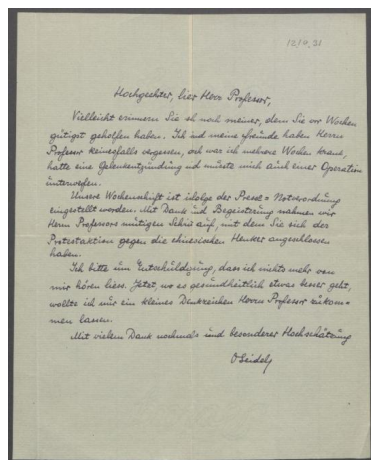 12/9.31
Hochgeehrter, lieber Herr Professor,
Vielleicht erinnern Sie sich noch meiner, dem Sie vor Wochen
gütigst geholfen haben. Ich und meine Freunde haben Herrn
Professor keinesfalls vergessen, doch war ich mehrere Wochen krank,
hatte eine Gelenkentzündung und müsste mich auch einer Operation
unterziehen.
Unsere Wochenschrift ist infolge der Presse=Notverordnung
eingestellt worden. Mit Dank und Begeisterung nahmen wir
Herrn Professors mutigen Schritt auf, mit dem Sie sich der
Protestaktion gegen die chinesischen Henker angeschlossen
haben.
Ich bitte um Entschuldigung, dass ich nichts mehr von
mir hören liess. Jetzt, wo es gesundheitlich etwas besser geht,
wollte ich nur ein kleines Denkzeichen Herrn Professor zukom=
men lassen.
Mit vielem Dank nochmals und besonderer Hochschätzung